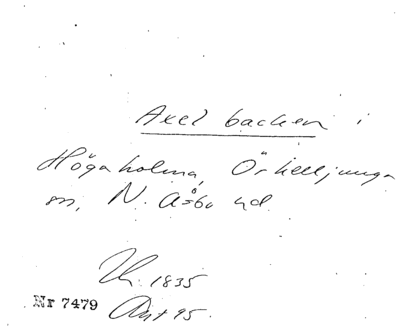 Axel backen i
Högaholma, Örkelljunga
sn, N. Åsbo hd
1835
Nr 7479